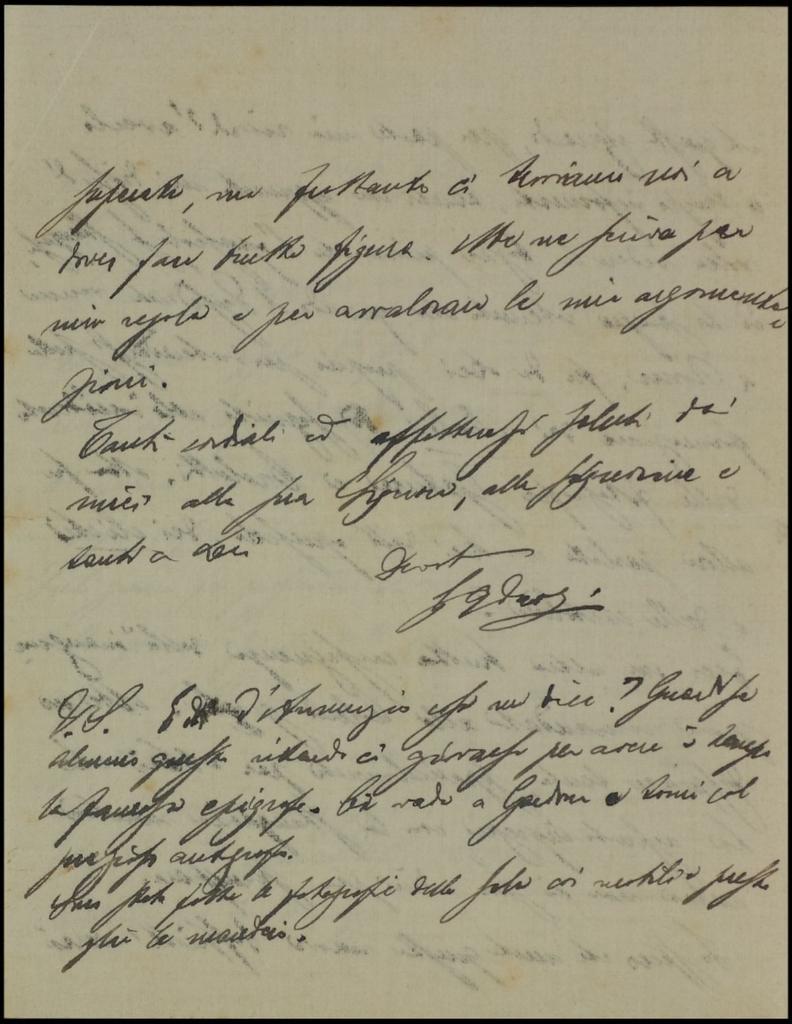 saperlo, ma frattanto ci troviamo noi a
dover fare brutta figura. Me ne scriva per
mia regola e per avvalorare le mie argomenta
zioni.
Tanti cordiali ed affettuosi saluti dai
miei alla sua Signora, alla Signorina e
tanti a Lei
Devot
P.S. E D'Annunzio cosa ne dice? Guardi se
almeno questo ritardo ci giovasse per avere in tempo
la famosa epigrafe. Ci vada a Gardone e torni col
prezioso autografo.
Sono state fatte le fotografie della sala coi mobili e presto
glie le manderò.